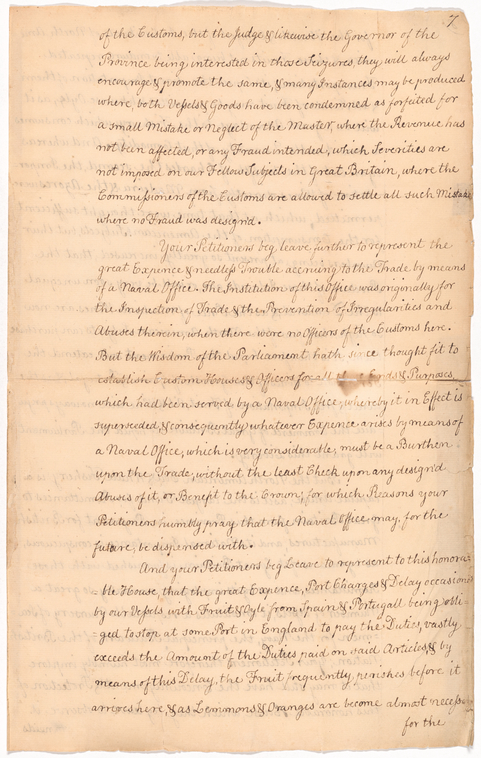 7
of the Customs, but the Judge & likewise the Governor of the
Province being interested in those Seizures, they will always
encourage & promote the same, & many Instances may be produced
where both Vessels & Goods have been condemned as forfeited for
a small Mistake or Neglect of the Master, where the Revenue has
not been affected, or any Fraud intended, which Severities are
not imposed on our Fellow Subjects in Great Britain, where the
Commissioners of the Customs are allowed to settle all such Mistake
where no Fraud was design'd.
Your Petitioners beg leave further to represent the
great Expence & needless Trouble accruing to the Trade by means
of a Naval Office. The Institution of this Office was originally for
the Inspection of Trade & the Prevention of Irregularities and
Abuses therein, when there were no Officers of the Customs here.
But the Wisdom of the Parliament hath since thought fit to
establish Custom Houses & Officers for all & Purposes,
which had been served by a Naval Office, whereby it in Effect is
superseded, & consequently whatever Expence arises by means of
a Naval Office, which is very considerable, must be a Burthen
upon the Trade, without the least Check upon any design'd
Abuses of it, or Benefit to the Crown; for which Reasons your
Petitioners humbly pray that the Naval Office may, for the
future, be dispensed with.
And your Petitioners beg Leave to represent to this honora-
-ble House, that the great Expence, Port Charges & Delay occasion'd
by our Vessels, with Fruit & Oyle from Spain & Portugall being obli-
-ged to stop at some Port in England to pay the Duties, vastly
exceeds the Amount of the Duties paid on said Articles, & by
means of this Delay, the Fruit frequently perishes before it
arrives here, & as Lemmons & Oranges are become almost necess-
for the